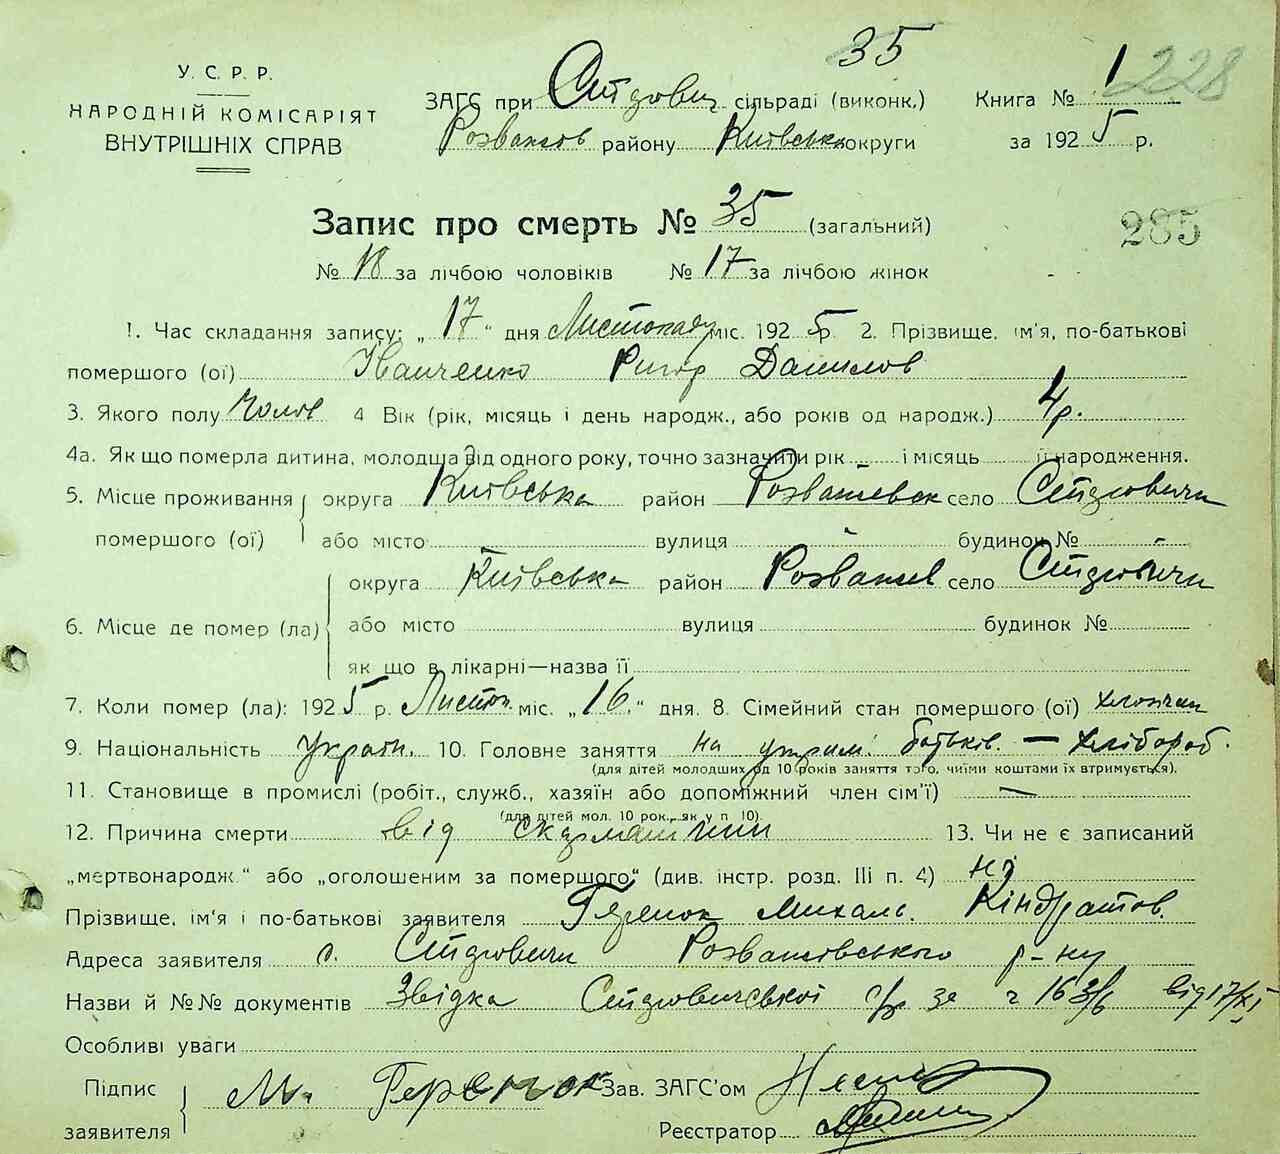 35
У. С. Р. Р.
НАРОДНІЙ КОМІСАРІЯТ
ВНУТРІШНІХ СПРАВ
228
ЗАГС при сільраді (виконк.) Книга № 1
району Київська округи за 1925 р.
Запис про смерть № 35 (загальний)
285
№ 18 за лічбою чоловіків № 17 за лічбою жінок
1. Час складання запису: „17“ дня Листопаду міс. 1925 р. 2. Прізвище, ім'я, по-батькові
помершого (ої) Іванченко Ригор Данилов
3. Якого полу Чолов 4 Вік (рік, місяць і день народж., або років од народж.) 4 р.
4а. Як що померла дитина, молодша від одного року, точно зазначити рік і місяць її народження.
5. Місце проживання округа Київська район село
помершого (ої) або місто вулиця будинок №
округа Київська район Розважев село
6. Місце де помер (ла) або місто вулиця будинок №
як що в лікарні—назва її
7. Коли помер (ла): 1925 р. Листоп. міс. „16.“ дня. 8. Сімейний стан помершого (ої) хлопчик
9. Національність Україн. 10. Головне заняття на утрим. батьків. — хлібороб.
(для дітей молодших од 10 років заняття того, чиїми коштами їх втримується).
11. Становище в промислі (робіт., служб., хазяїн або допоміжний член сім'ї) —
(для дітей мол. 10 рок., як у п 10).
12. Причина смерти від 13. Чи не є записаний
„мертвонародж.“ або „оголошеним за помершого“ (див. інстр. розд. III п. 4) ні
Прізвище, ім'я і по-батькові заявителя Геренок Михаль. Кіндратов.
Адреса заявителя с. Розважівського р-ну
Назви й №№ документів Звідка с/р за ч 163/б від 17/XI
Особливі уваги
Підпис М. Геренок Зав. ЗАГС'ом
заявителя Реєстратор